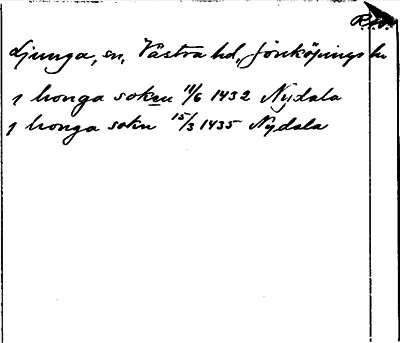 R.A.
Ljunga, sn, Västra hd, Jönköpings ln
i lionga soken 11/6 1432 Nydala
i lionga sokn 15/3 1435 Nydala